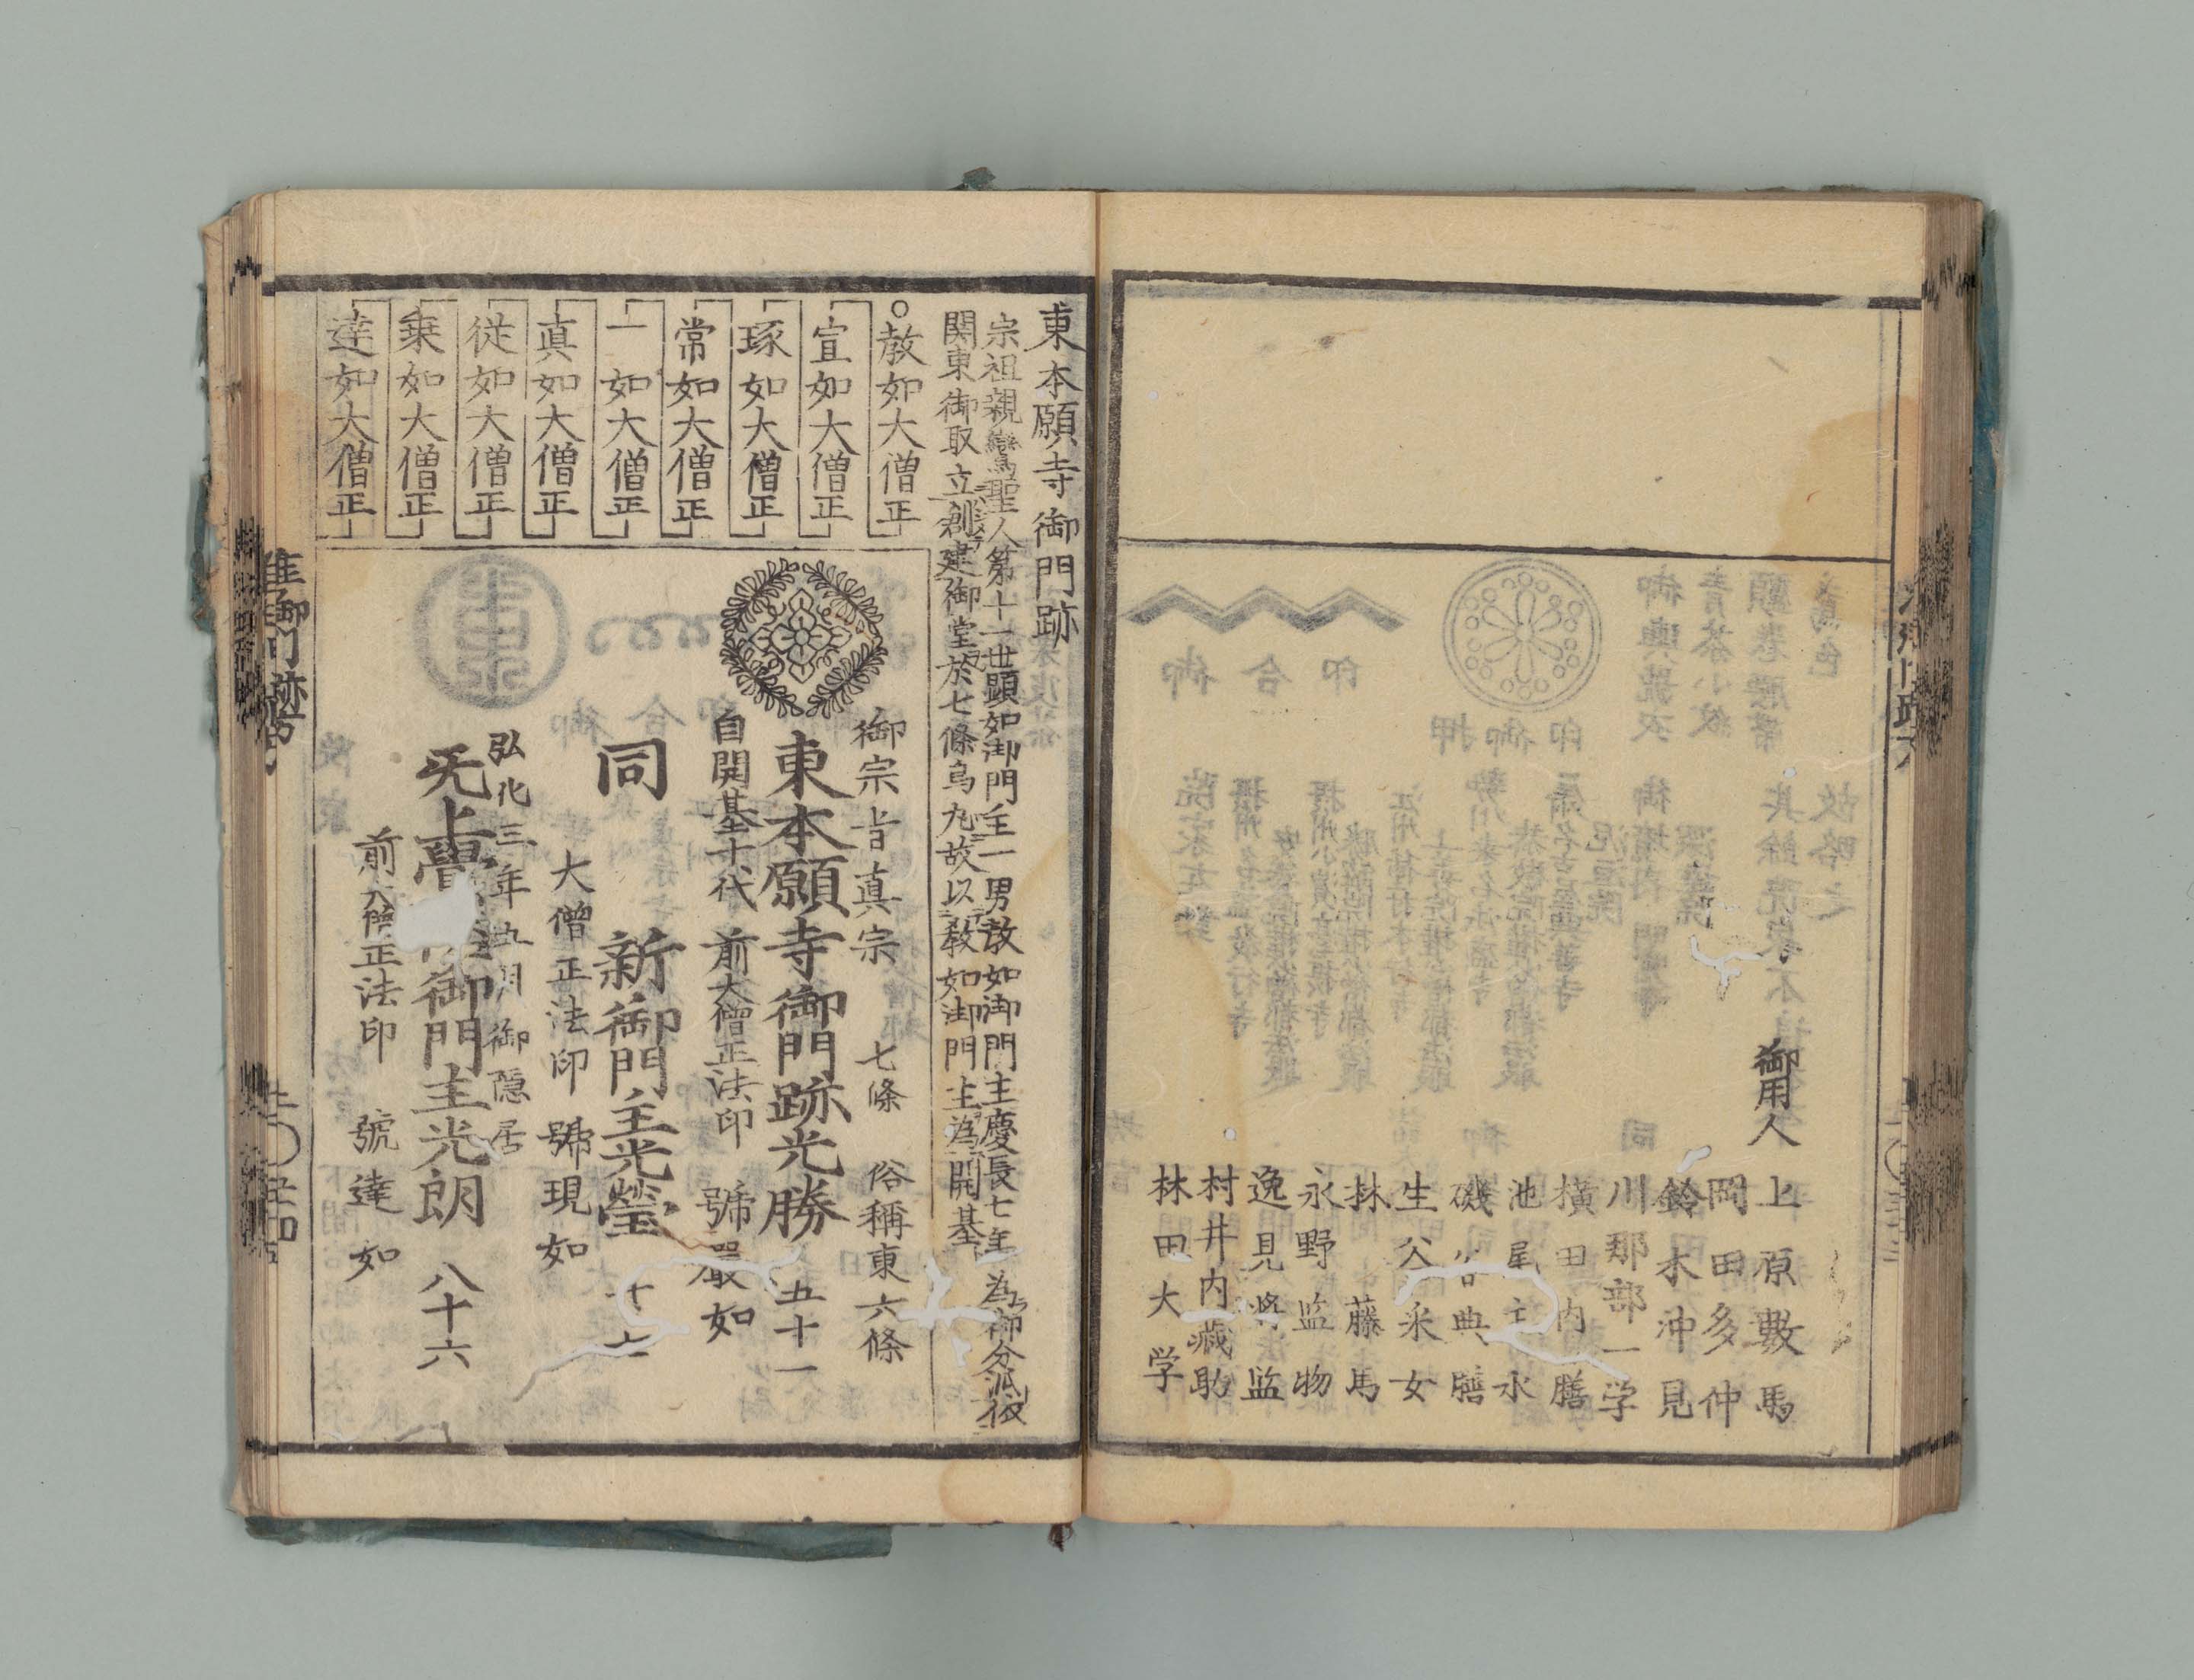 御用人
上原數馬
岡田多仲
鈴木沖見
川那部一学
横田内膳
池尾主水
磯谷典膳
生父釆女
林藤馬
永野監物
逸見將監
村井内藏助
林田大学
東本願寺御門跡
宗祖親鸞聖人第十一世顕如御門主一男教如御門主慶長七年為御分派被
関東御取立創建御堂於七條烏丸故以教如御門主為開基
教如大僧正
宣如大僧正
琢如大僧正
常如大僧正
一如大僧正
真如大僧正
従如大僧正
乗如大僧正
達如大僧正
御宗旨真宗 七條 俗稱東六條
東本願寺御門跡光勝 五十一
自開基十代 前大僧正法印 號嚴如
同 新御門主光瑩 十六
大僧正法印 號現如
弘化三年五月御隠居
御門主光朗 八十六
前大僧正法印 號達如
准御門跡